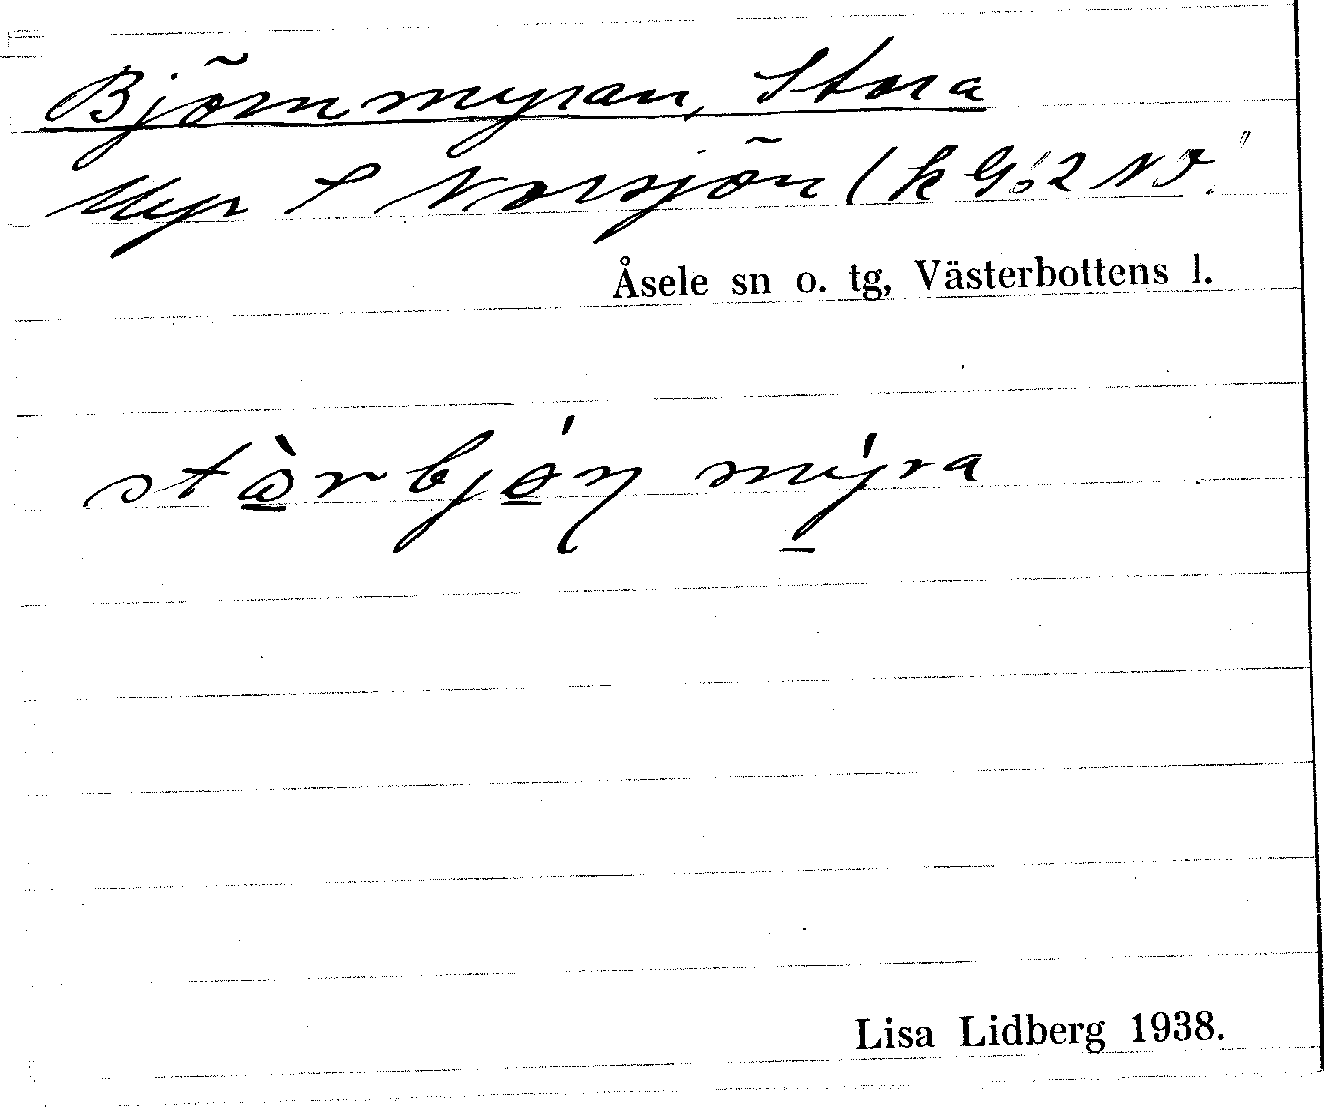 Björnmyran, Stora
Myr S Norsjön (k G:2 NJ.
Åsele sn o. tg, Västerbottens l.
stò̱rbjǿ̱ṇ mý̱ra
Lisa Lidberg 1938.